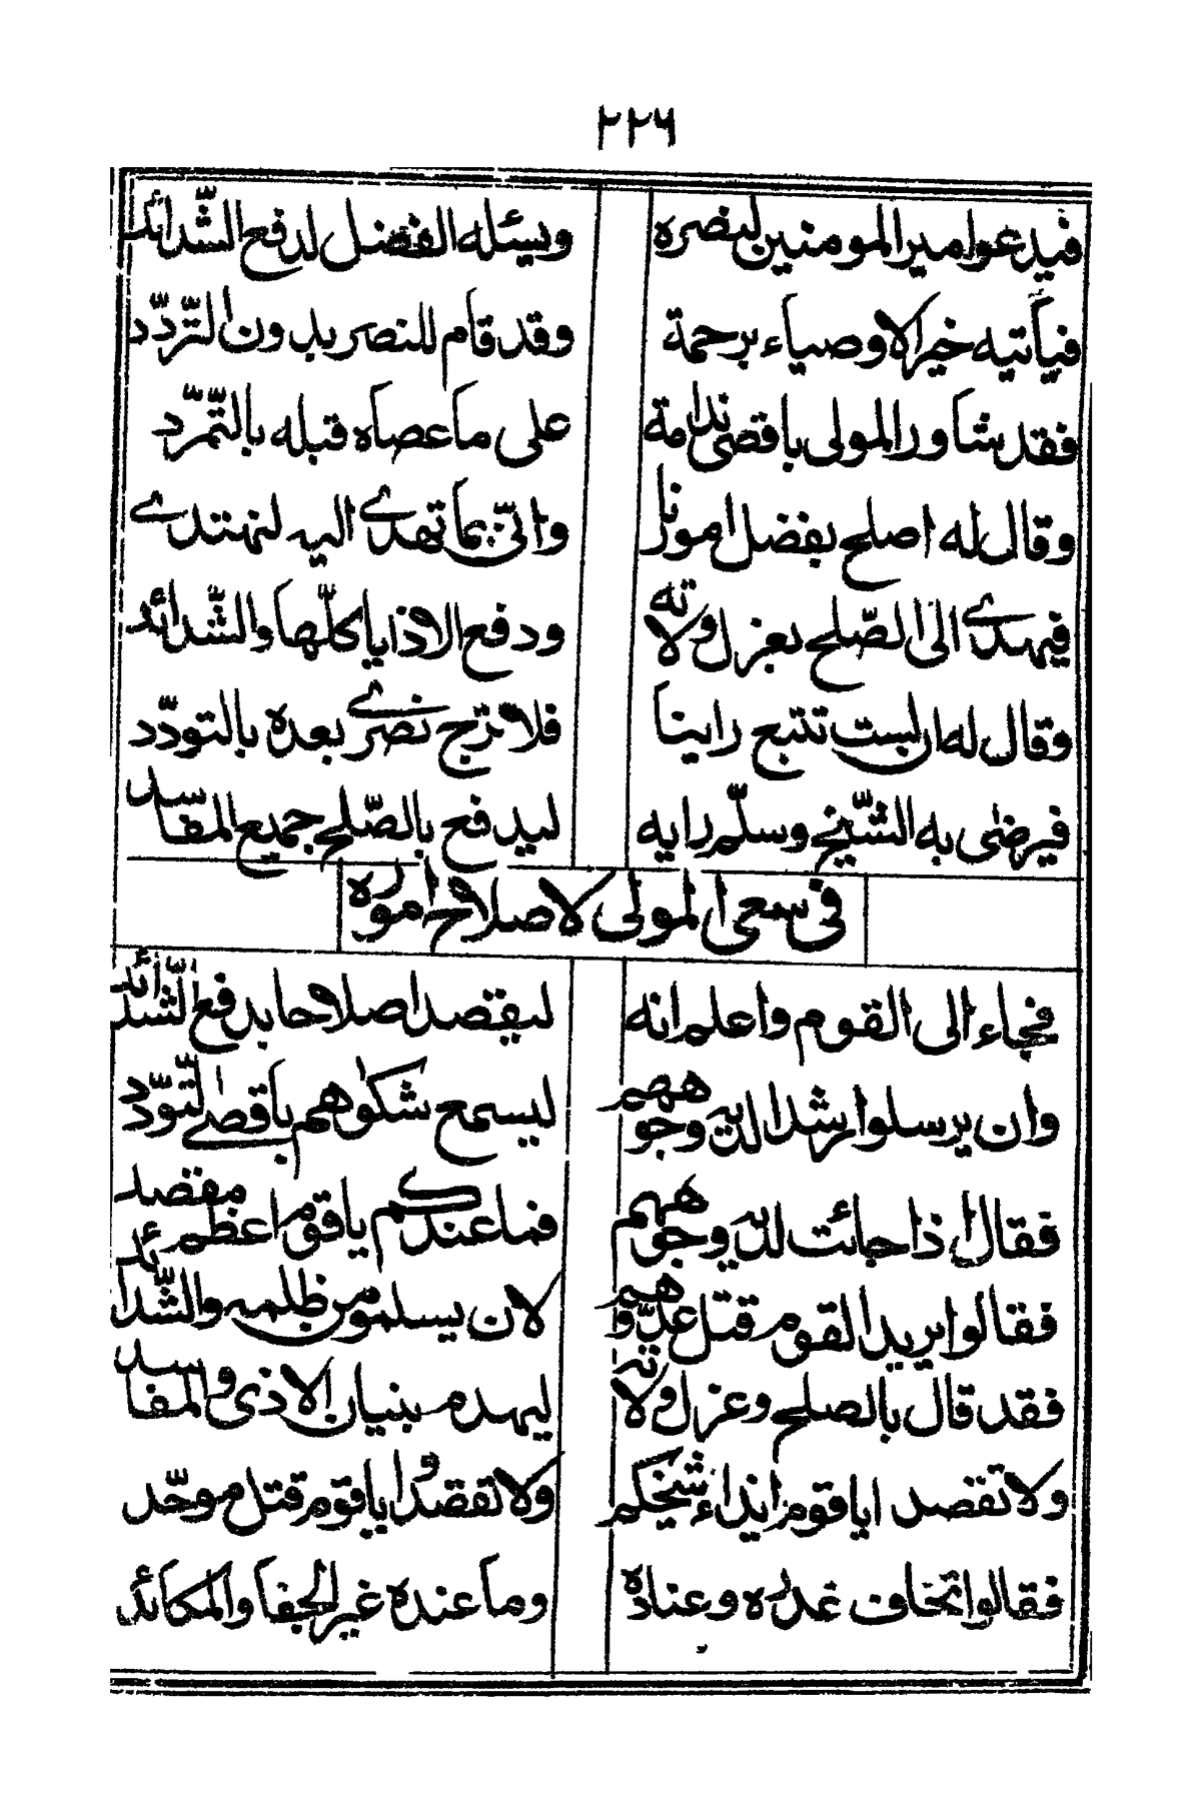 ٢٢٦
فيدعوا مير المومنين لينصره ويسئله الفضل لدفع الشّدائد
فيأتيه خير الاوصياء برحمة وقد قام للنصر بدون التّردّد
فقد شاور المولى باقصى ندامة على ما عصاه قبله بالتّمرّد
وقال له اصلح بفضل امورنا وانّي بما تهدي اليه لنهتدي
فيهدي الى الصّلح بعزل ولاته ودفع الاذايا كلّها والشّدائد
وقال له ان لست تتبع راينا فلا ترّج نصري بعده بالتودّد
فيرضى به الشّيخ وسلّم رايه ليدفع بالصّلح جميع المفاسد
في سعى المولى لاصلاح اموره
فجاء الى القوم واعلم انه ليقصد اصلاحا بدفع الشّدائد
وان يرسلوا رشدا لديه وجوههم ليسمع شكوٰهم باقصٰى لتّودّد
فقال اذا جائت لديه وجوههم فما عندكم يا قوم اعظم مقصد
فقالوا يريد القوم قتل عدّوهم لان يسلموا من ظلمه والشّدائد
فقد قال بالصلح وعزل ولاته ليهدم بنيان الاذى والمفاسد
ولا تقصد ايا قوم ايذاء شيخكم ولا تقصدوا يا قوم قتل موحّد
فقالوا نخاف غدره وعناده وما عنده غير الجفا والمكائد